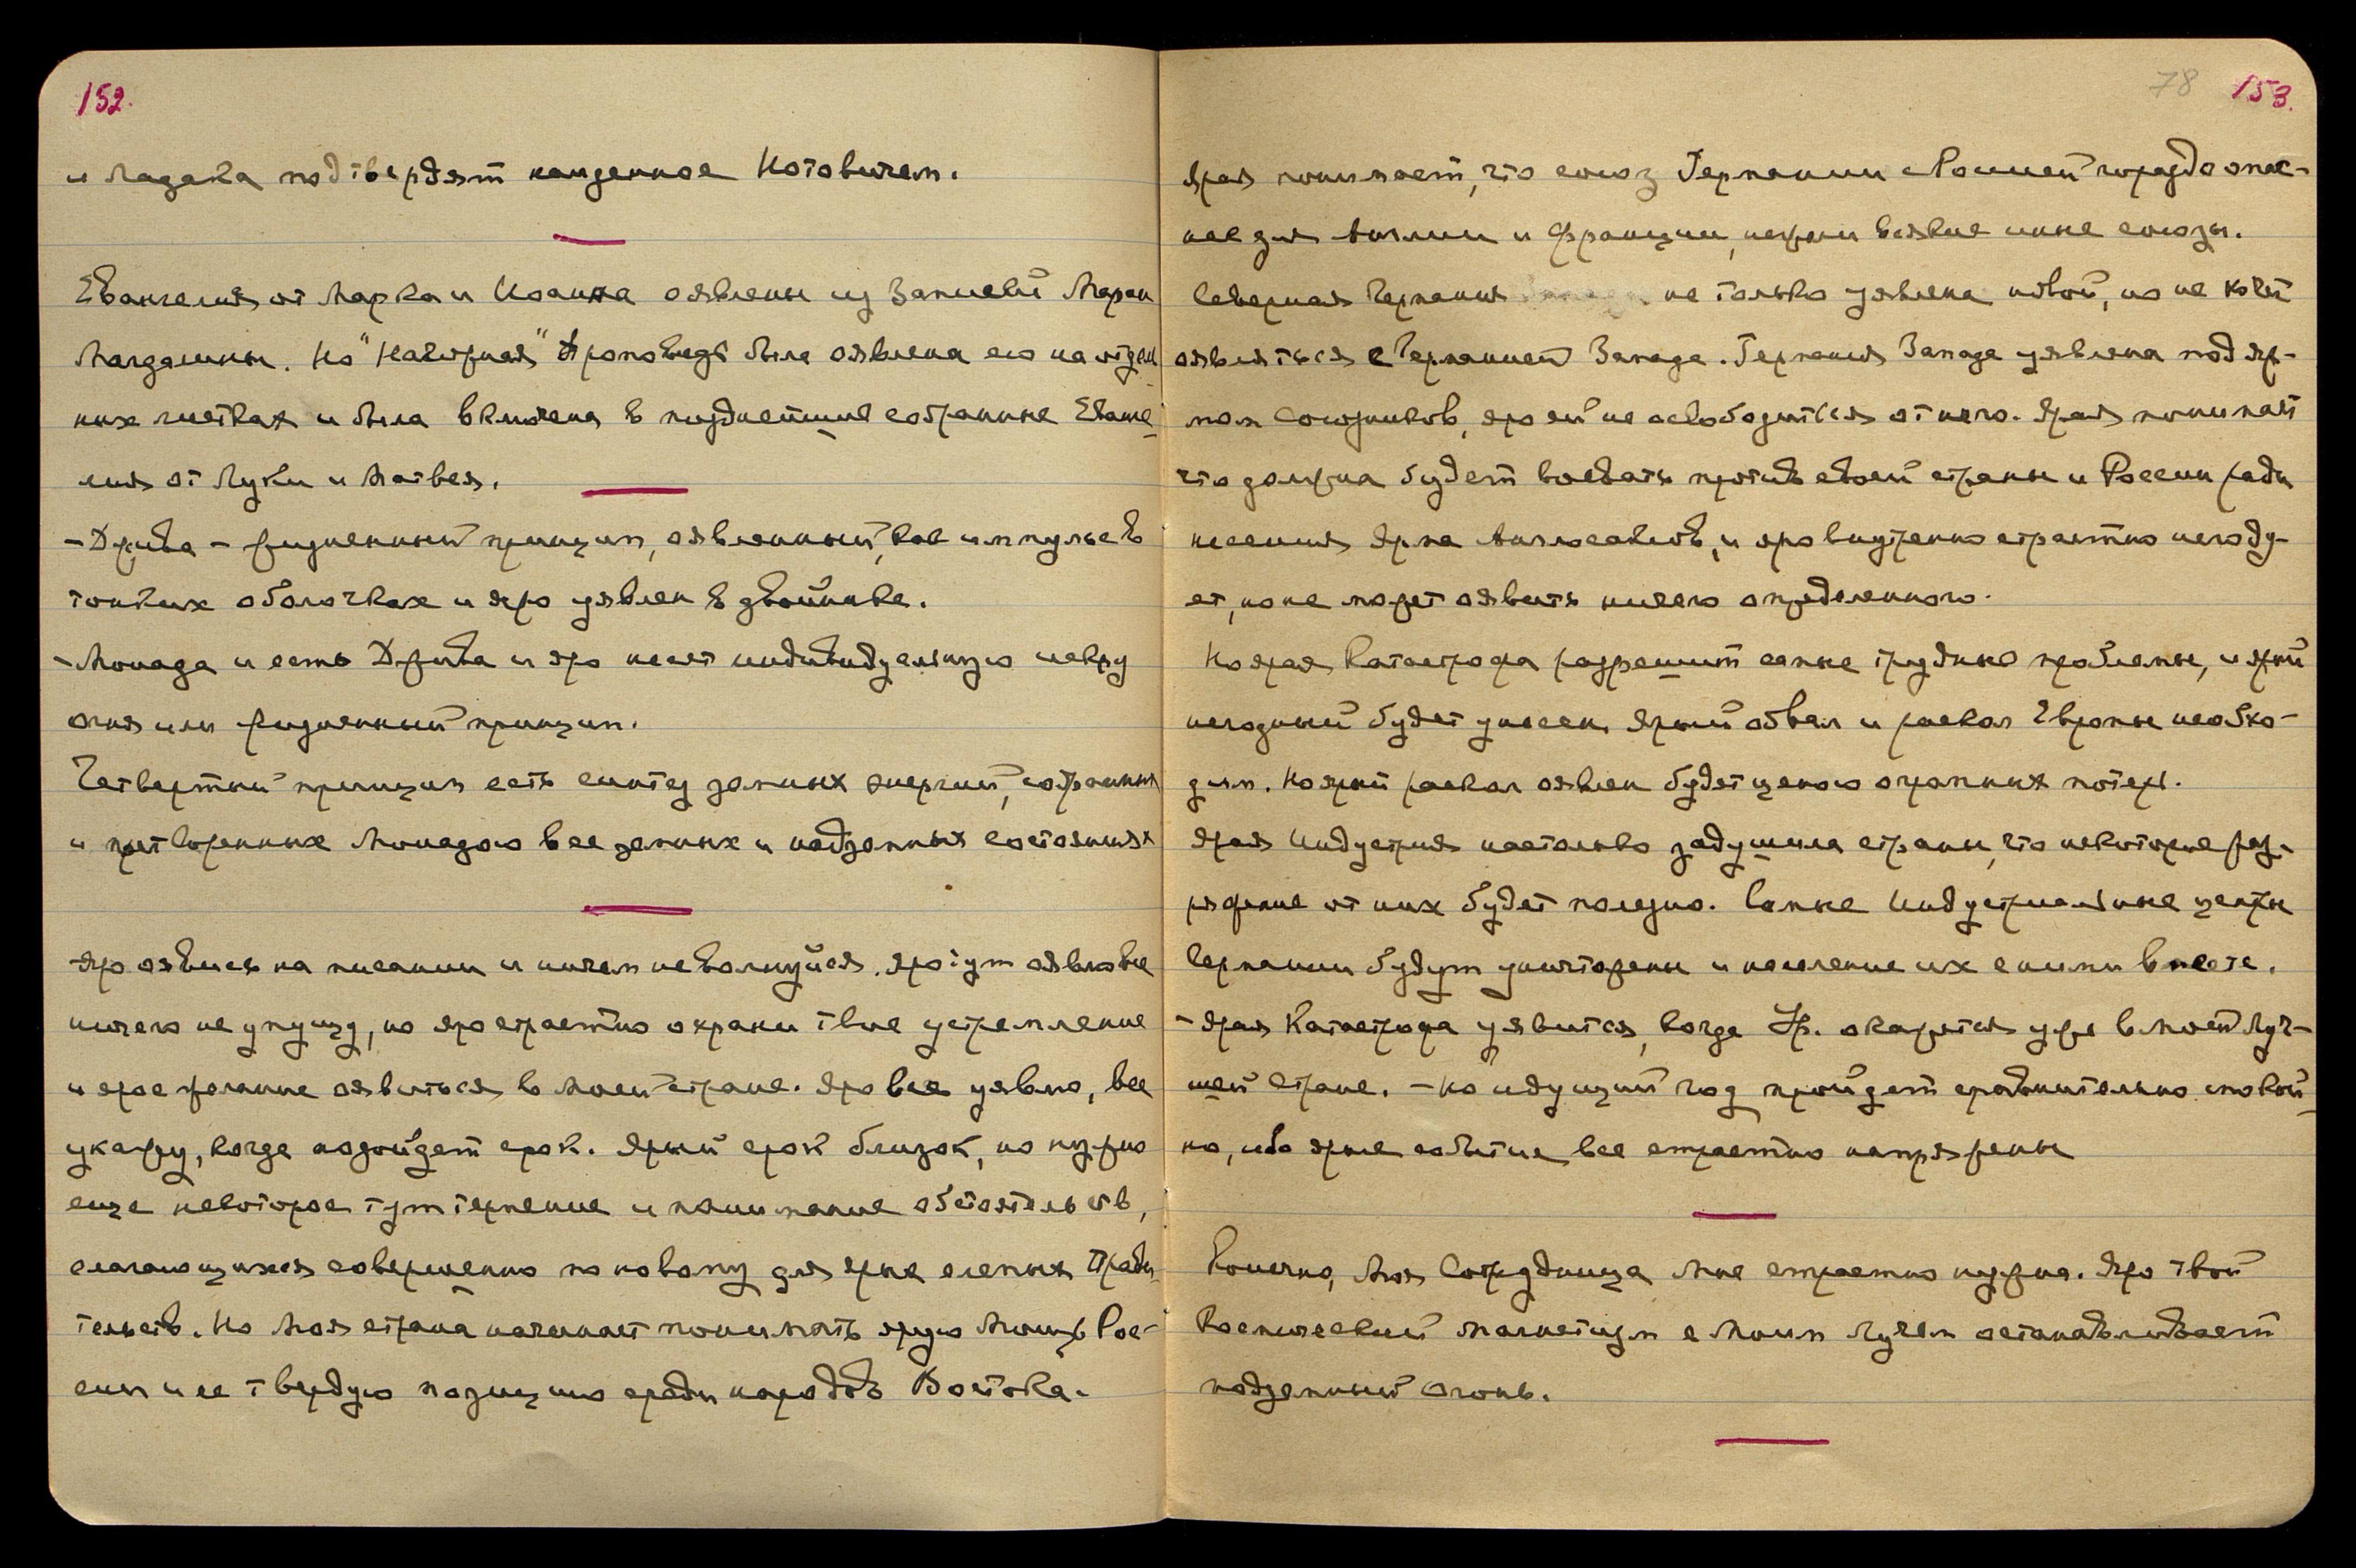 152.
и Ладака подтвердят найденное Нотовичем.
Евангелия от Марка и Иоанна оявлены из Записей Марии
Магдалины. Но "Нагорная" Проповедь была оявлена ею на отдель
ных листках и была включена в позднейшие собрание Еванге
лия от Луки и Матвея.
- Джива - жизненный принцип, оявленный, как импульс в
тонких оболочках и яро уявлен в двойнике.
- Монада и есть Джива и яро несет индивидуальную искру
огня или жизненный принцип.
Четвертый принцип есть синтез земных энергий, собранных
и претворенных Монадою в ее земных и надземных состояниях
Яро оявись на писании и ничем не волнуйся. Яро тут оявловие
ничего не упущу, но яро страстно охраню твое устремление
и ярое желание оявиться в Моей стране. Яро все уявлю, все
укажу, когда подойдет срок. Ярый срок близок, но нужно
еще некоторое тут терпение и понимание обстоятельств,
слагающихся совершенно по новому для ярых слепых Прави
тельств. Но Моя страна начинает понимать ярую Мощь Рос-
сии и ее твердую позицию среди народов Востока.
78 153.
Ярая понимает, что союз Германии с Россией гораздо опас-
нее для Англии и Франции, нежели всякие иные союзы.
Северная Германия не только уявлена новой, но не хочет
оявляться с Германией Запада. Германия Запада уявлена под яр-
мом Союзников, яро ей не освободиться от него. Ярая понимает
что должна будет воевать против своей страны и России ради
несения Ярма Англосаксов, и яро внутренно страстно негоду-
ет, но не может оявить ничего определенного.
Но ярая Катастрофа разрешит самые трудные проблемы, и ярый
негодный будет унесен. Ярый обвал и раскол Европы необхо-
дим. Но ярый раскол оявлен будет ценою огромных потерь.
Ярая Индустрия настолько задушила страны, что некоторое раз-
ряжение от них будет полезно. Самые Индустриальные центры
Германии будут уничтожены и население их с ними вместе.
- Ярая Катастрофа уявится, когда Ур. окажется уже в Моей Луч-
шей Стране. - Но идущий год пройдет сравнительно спокой
но, ибо ярые события все страстно напряжены
Конечно, Моя Сотрудница Мне страстно нужна. Яро твой
Космический магнетизм с Моим Лучом останавливает
подземный огонь.